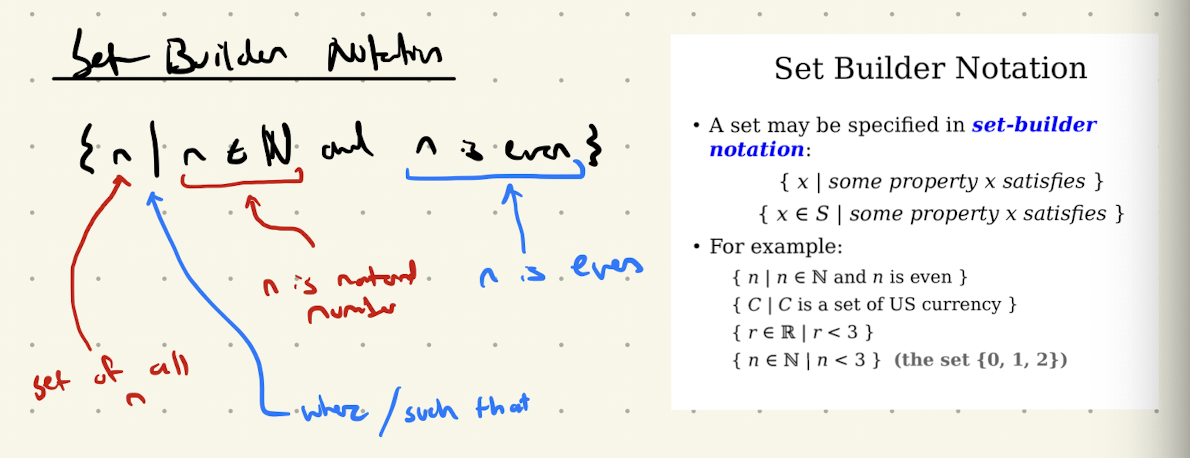 Set-Builder Notation
{ n | n ∈ ℕ and n is even }
n is natural
number
n is even
set of all
n
where / such that
Set Builder Notation
• A set may be specified in set-builder
notation:
{ x | some property x satisfies }
{ x ∈ S | some property x satisfies }
• For example:
{ n | n ∈ ℕ and n is even }
{ C | C is a set of US currency }
{ r ∈ ℝ | r < 3 }
{ n ∈ ℕ | n < 3 } (the set {0, 1, 2})